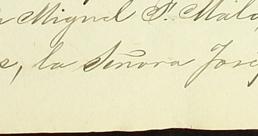 Miguel F. Malo
, la Señora Jose